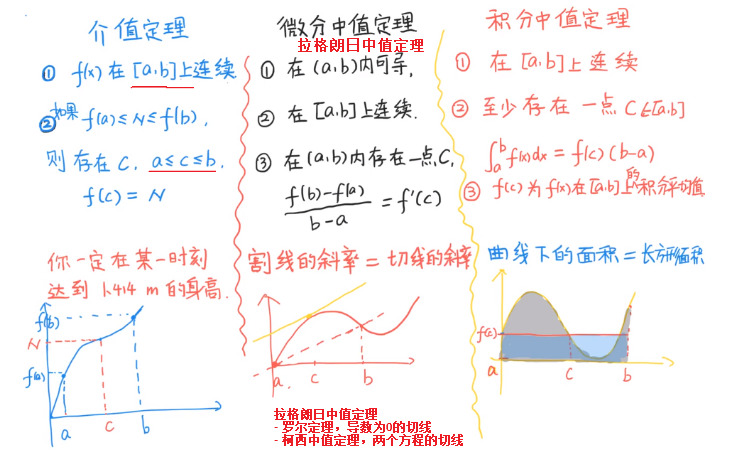 介值定理
① f(x) 在 [a,b] 上连续
② 如果 f(a) ≤ N ≤ f(b),
则存在 C, a ≤ c ≤ b.
f(c) = N
你一定在某一时刻
达到 1.414 m 的身高.
f(b)
N
f(a)
a
c
b
微分中值定理
拉格朗日中值定理
① 在 (a,b) 内可导,
② 在 [a,b] 上连续.
③ 在 (a,b) 内存在一点 C,
f(b)-f(a)
b-a
= f'(c)
割线的斜率 = 切线的斜率
a.
c
b
拉格朗日中值定理
- 罗尔定理，导数为0的切线
- 柯西中值定理，两个方程的切线
积分中值定理
① 在 [a,b] 上连续
② 至少存在一点 C∈[a,b]
∫ₐᵇ f(x)dx = f(c) (b-a)
③ f(c) 为 f(x) 在 [a,b] 上的积分平均值
曲线下的面积 = 长方形面积
f(c)
a
c
b